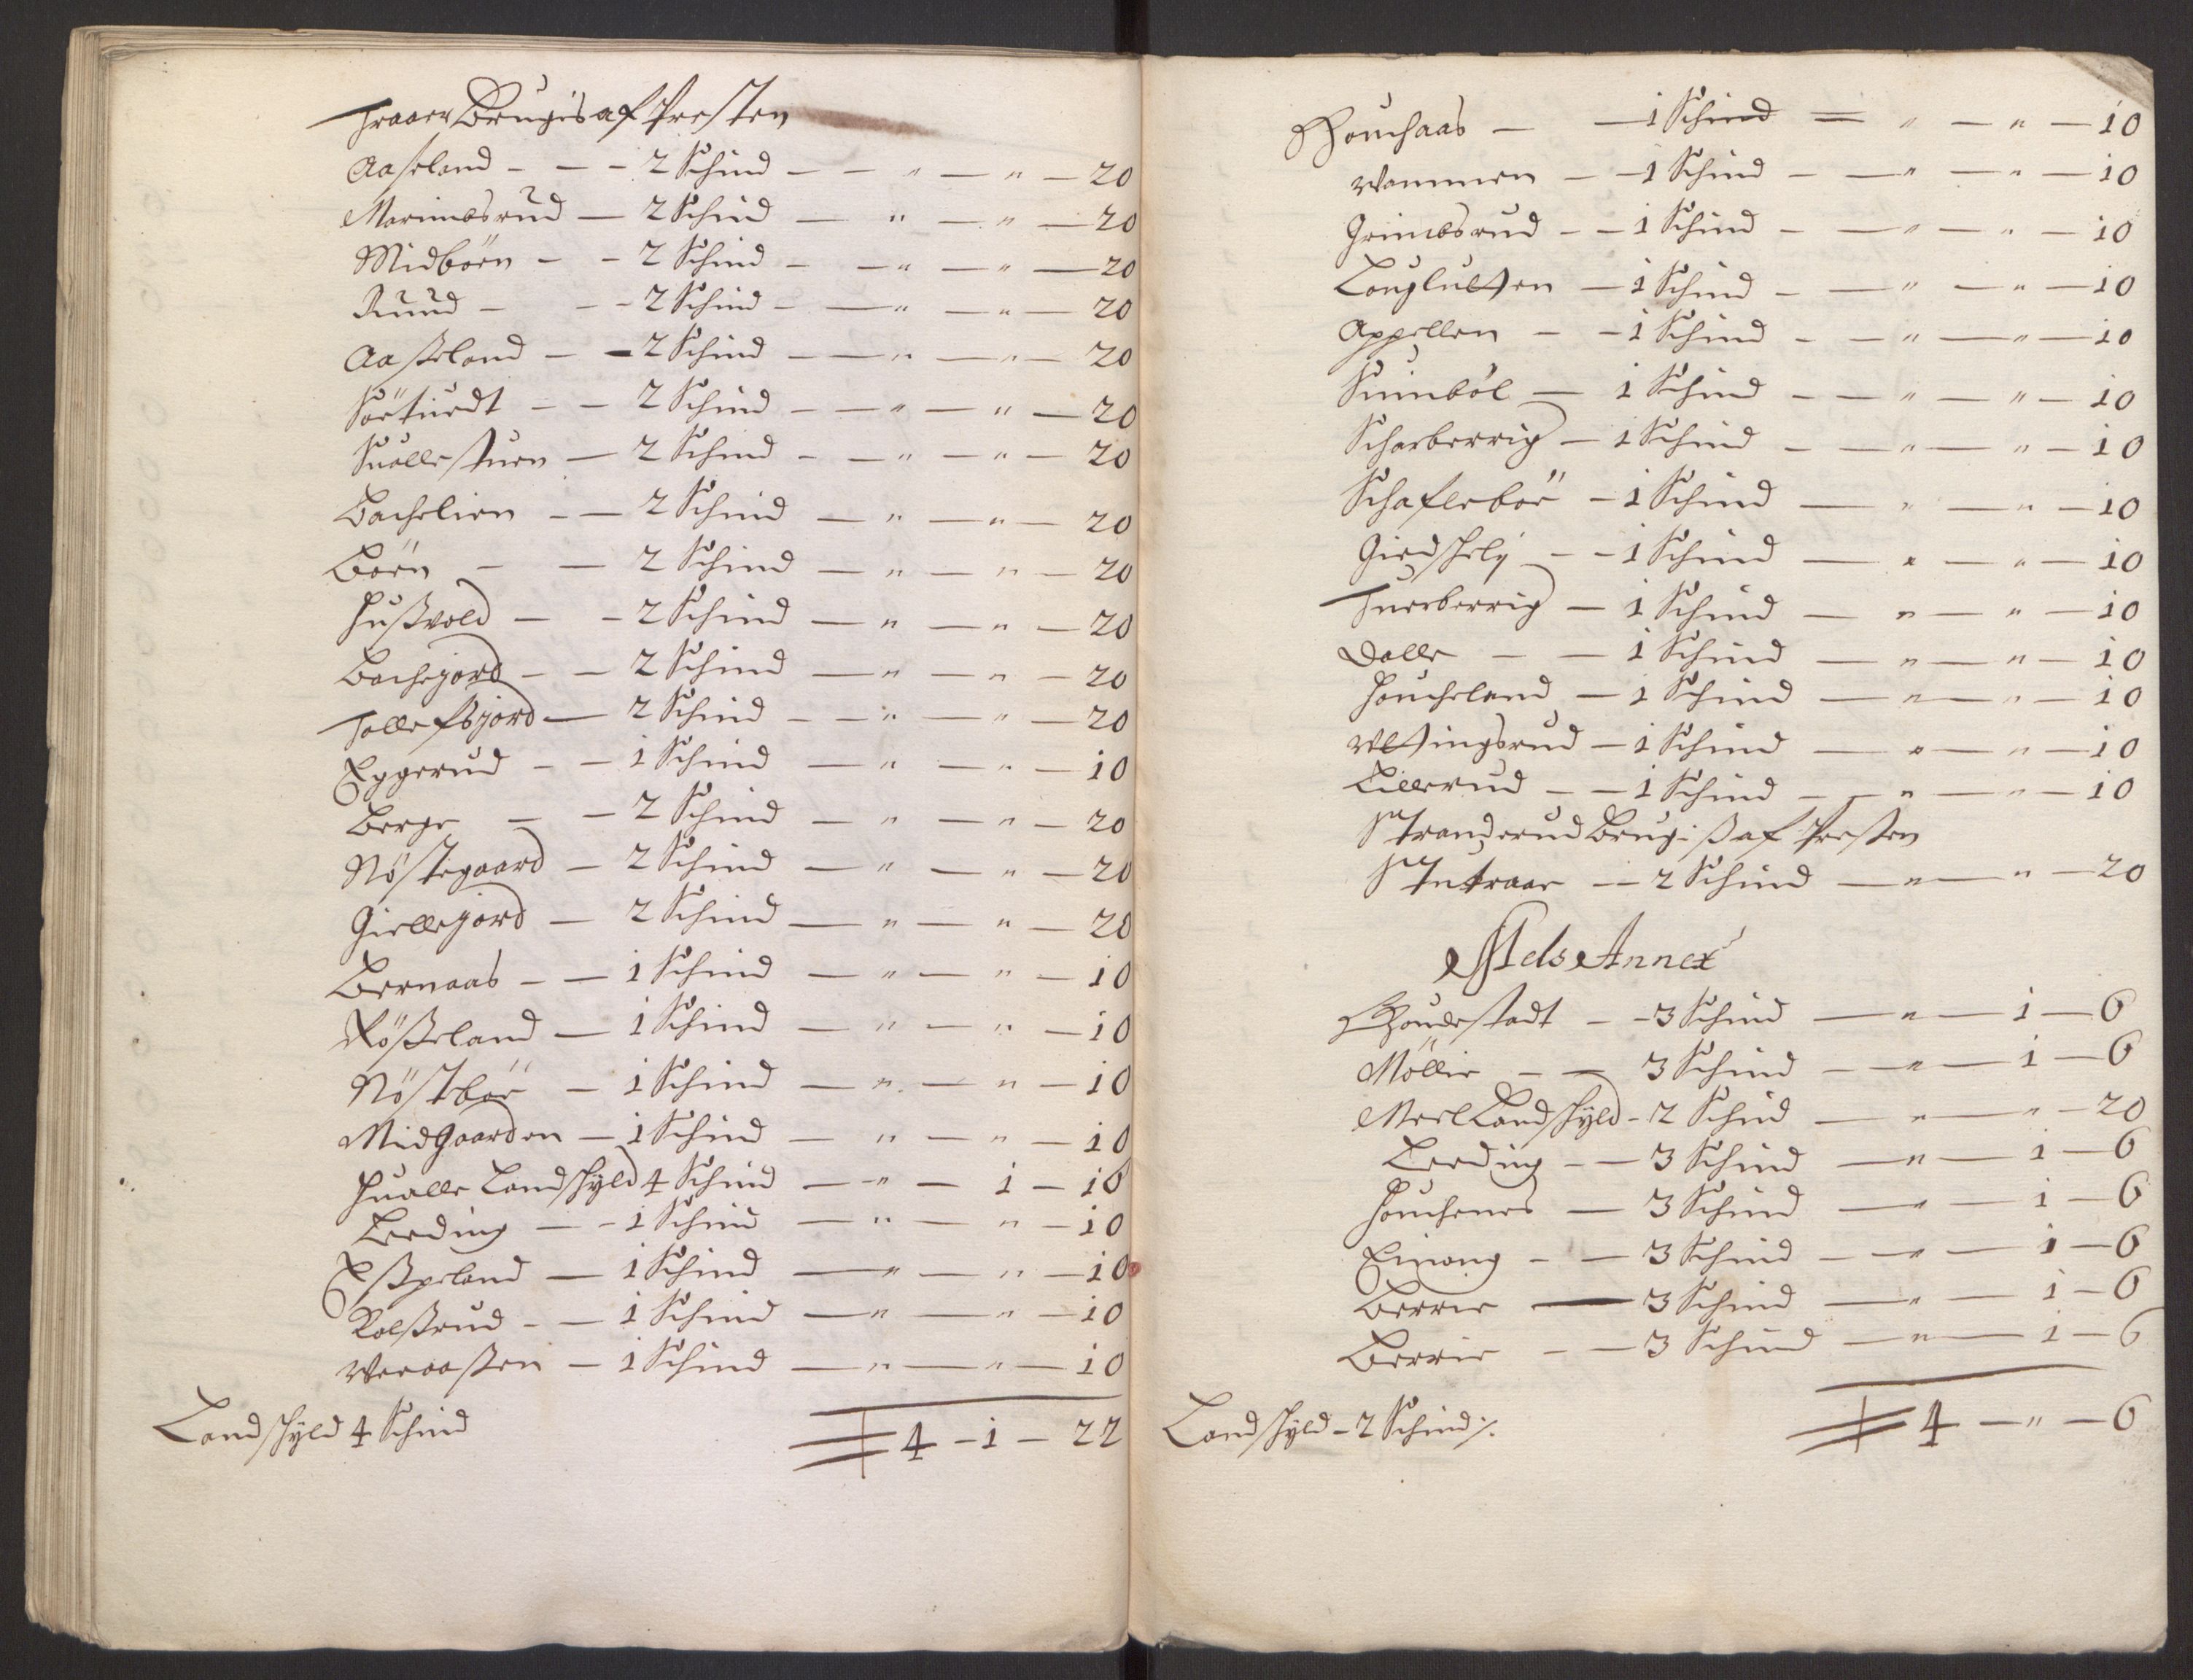 Traaen Brugis af Presten
Aaseland - - - 2 Schind - - " - " - 20
Marumbsrud - 2 Schind - " - " - 20
Midböen - - 2 Schind - - " - " - 20
Ruud - - - 2 Schind - - " - " - 20
Aaßeland - - 2 Schind - - " - " - 20
Sörtüedt - - 2 Schind - - " - " - 20
Suallestuen - 2 Schind - - " - " - 20
Bachelien - - 2 Schind - " - " - 20
Böen - - 2 Schind - " - " - 20
Hußvold - - 2 Schind - " - " - 20
Bachejord - - 2 Schind - " - " - 20
Tollefsjord - 2 Schind - - " - " - 20
Eggerud - - 1 Schind - " - " - 10
Berge - - 2 Schind - " - " - 20
Nöstegaard - 2 Schind - " - " - 20
Giellejord - 2 Schind - " - " - 20
Bernaas - - 1 Schind - " - " - 10
Rößeland - 1 Schind - " - " - 10
Nösteböe - 1 Schind - " - " - 10
Midgaarden - 1 Schind - " - " - 10
Hualle Landschyld 4 Schind - " - 1 - 16
Leeding - - 1 Schind - " - " - 10
Eßpeland - 1 Schind - " - " - 10
Kolßrud - - 1 Schind - " - " - 10
Weraaßen - 1 Schind - " - " - 10
Landschyld 4 Schind 4 - 1 - 22
Houchaas - - 1 Schind - " - " - 10
Wammen - - 1 Schind - - " - " - 10
Grimbsrud - - 1 Schind - - " - " - 10
Langlutten - 1 Schind - - " - " - 10
Appellen - - 1 Schind - - " - " - 10
Sunnböl - 1 Schind - - " - " - 10
Scharberrig - 1 Schind - - " - " - 10
Schafleböe - 1 Schind - " - " - 10
Giedschely - - 1 Schind - " - " - 10
Tuerberrig - 1 Schind - " - " - 10
Dalle - - 1 Schind - " - " - 10
Houcheland - 1 Schind - " - " - 10
Wttingsrud - 1 Schind - " - " - 10
Lillerud - - 1 Schind - - " - " - 10
Stranderud Brugis af Presten
Stutraar - 2 Schind - " - " - 20
Nels Annex
Houdestadt - - 3 Schind - " - 1 - 6
Möllie - - 3 Schind - - " - 1 - 6
Meel Landschyld - 2 Schind - " - " - 20
Leeding - - 3 Schind - " - 1 - 6
Houchenes - 3 Schind - " - 1 - 6
Einong - - 3 Schind - - " - 1 - 6
Berrie - 3 Schind - " - 1 - 6
Berrie - - 3 Schind - " - 1 - 6
Landschyld - 2 Schind ./. 4 - " - 6